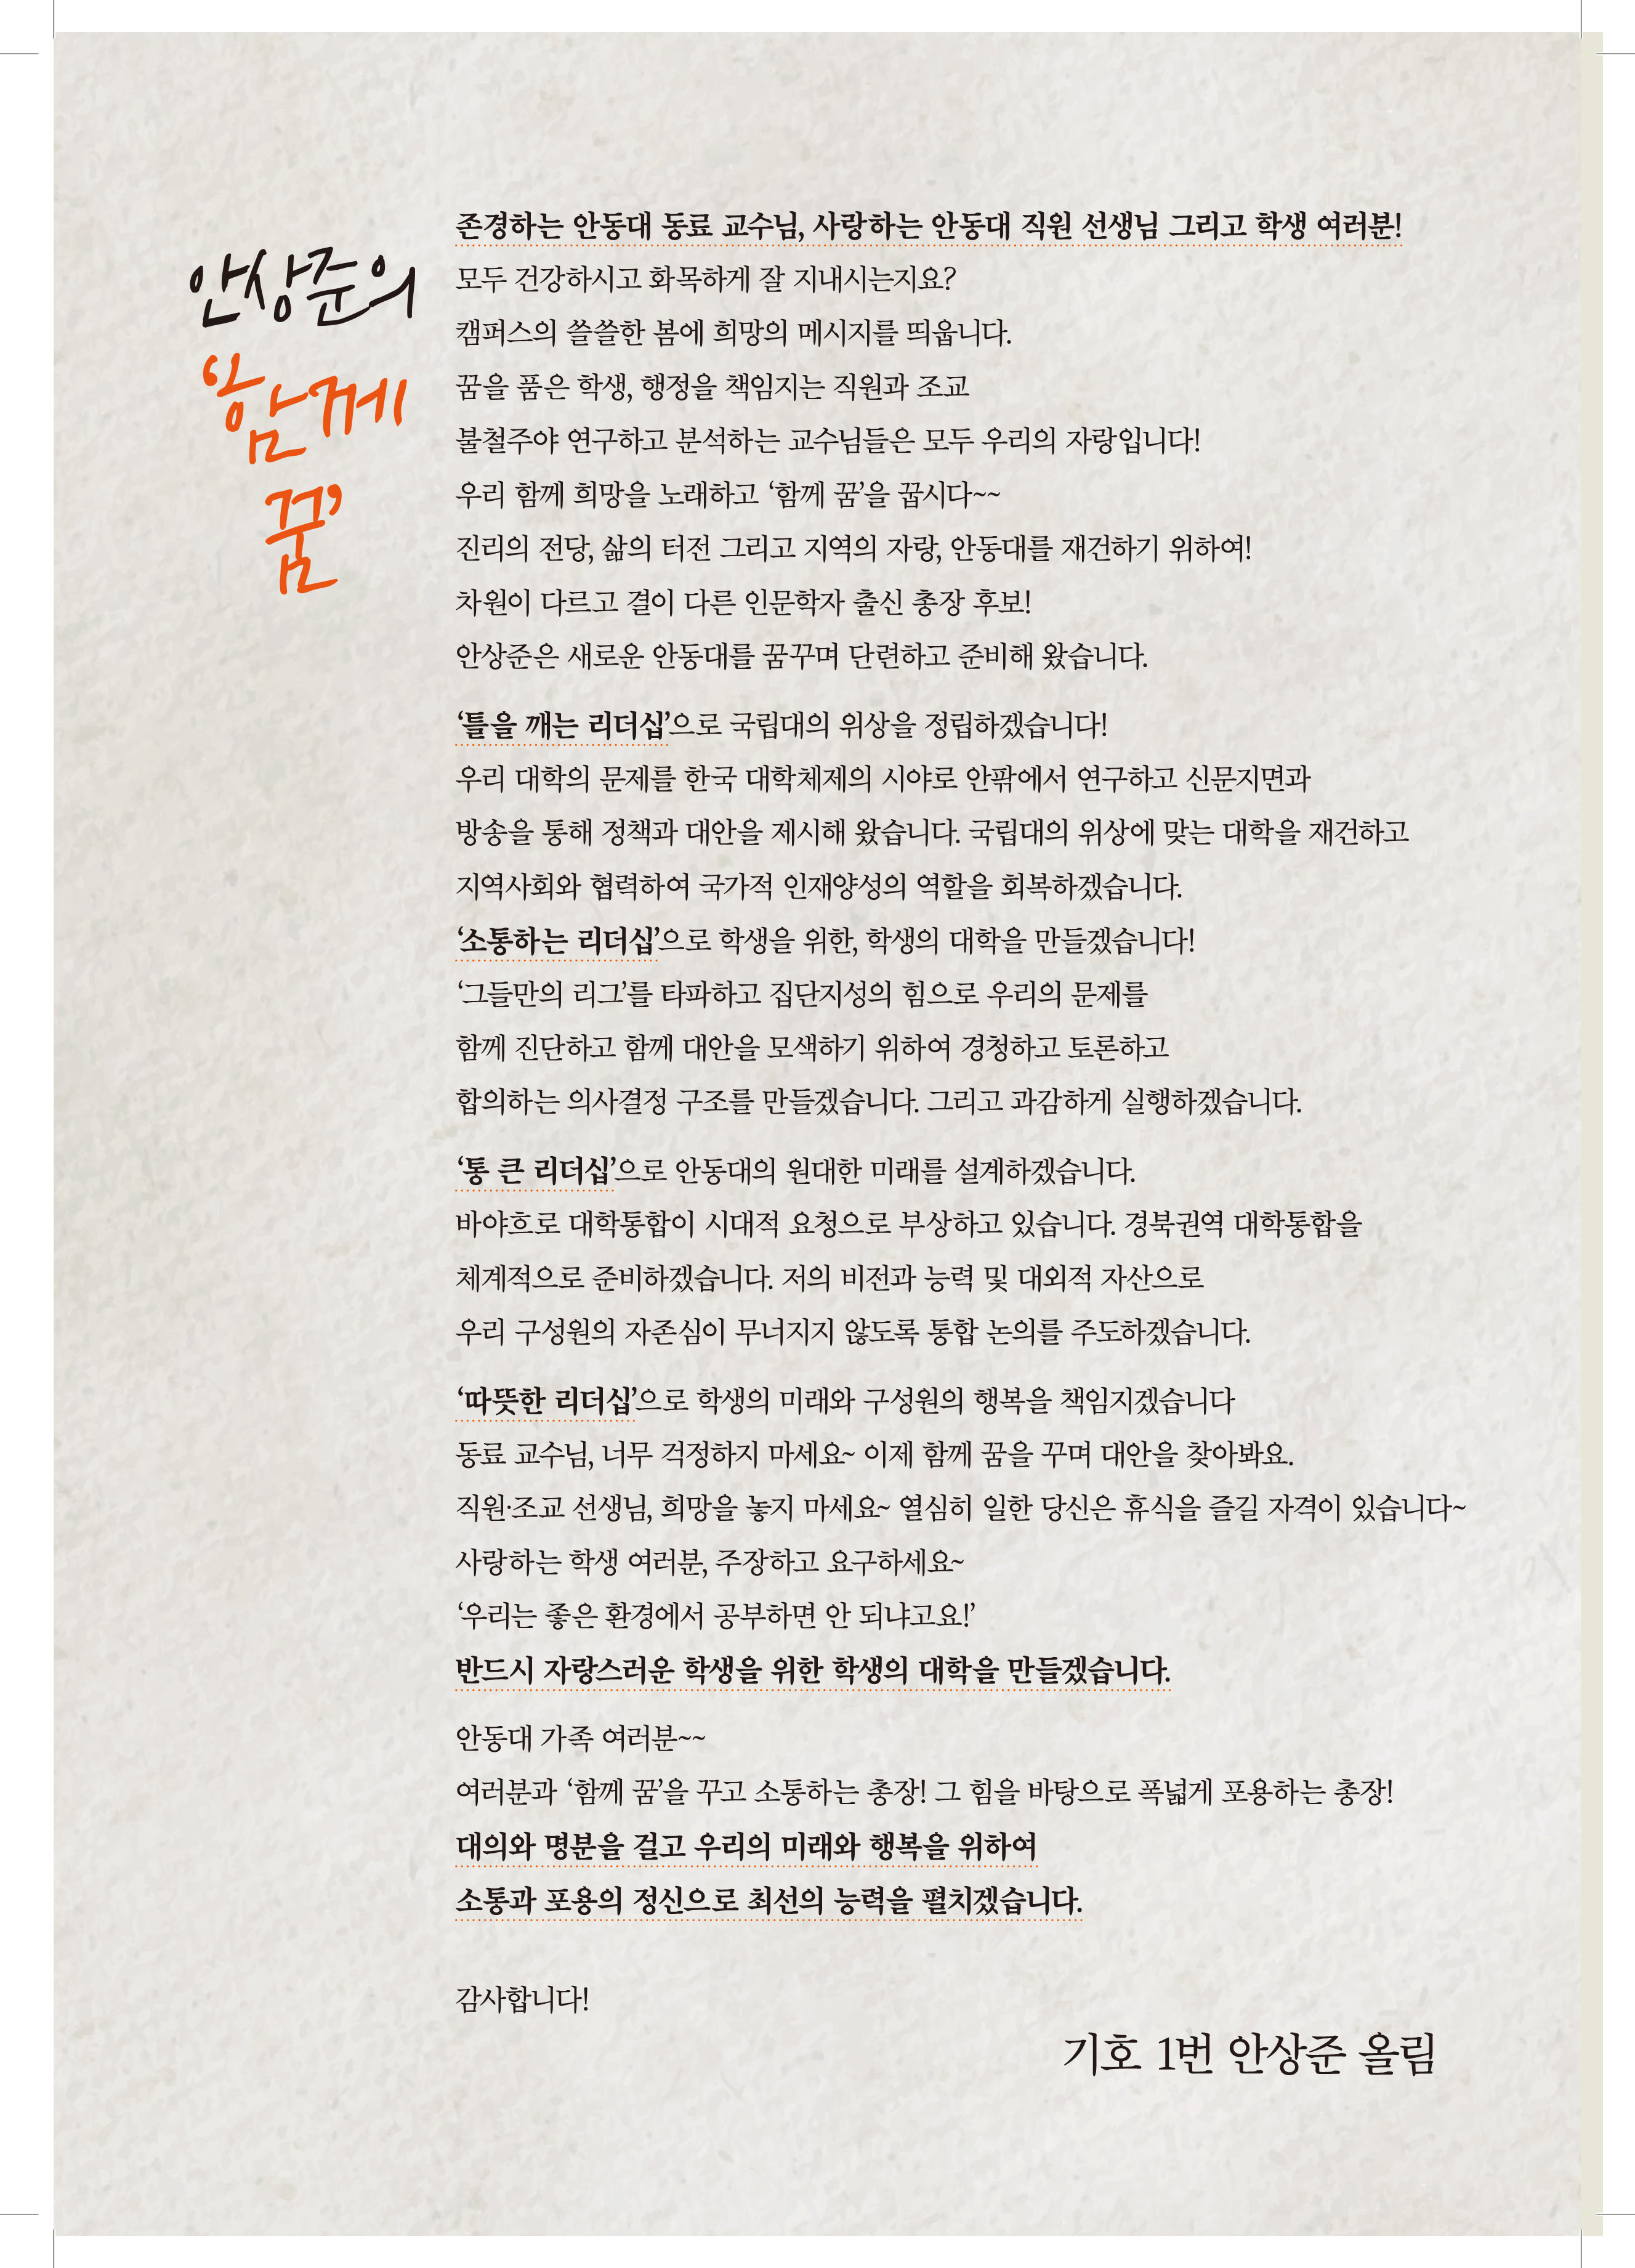 안상준의
‘함께
꿈’
존경하는 안동대 동료 교수님, 사랑하는 안동대 직원 선생님 그리고 학생 여러분!
모두 건강하시고 화목하게 잘 지내시는지요?
캠퍼스의 쓸쓸한 봄에 희망의 메시지를 띄웁니다.
꿈을 품은 학생, 행정을 책임지는 직원과 조교
불철주야 연구하고 분석하는 교수님들은 모두 우리의 자랑입니다!
우리 함께 희망을 노래하고 ‘함께 꿈’을 꿉시다~~
진리의 전당, 삶의 터전 그리고 지역의 자랑, 안동대를 재건하기 위하여!
차원이 다르고 결이 다른 인문학자 출신 총장 후보!
안상준은 새로운 안동대를 꿈꾸며 단련하고 준비해 왔습니다.
‘틀을 깨는 리더십’으로 국립대의 위상을 정립하겠습니다!
우리 대학의 문제를 한국 대학체제의 시야로 안팎에서 연구하고 신문지면과
방송을 통해 정책과 대안을 제시해 왔습니다. 국립대의 위상에 맞는 대학을 재건하고
지역사회와 협력하여 국가적 인재양성의 역할을 회복하겠습니다.
‘소통하는 리더십’으로 학생을 위한, 학생의 대학을 만들겠습니다!
‘그들만의 리그’를 타파하고 집단지성의 힘으로 우리의 문제를
함께 진단하고 함께 대안을 모색하기 위하여 경청하고 토론하고
합의하는 의사결정 구조를 만들겠습니다. 그리고 과감하게 실행하겠습니다.
‘통 큰 리더십’으로 안동대의 원대한 미래를 설계하겠습니다.
바야흐로 대학통합이 시대적 요청으로 부상하고 있습니다. 경북권역 대학통합을
체계적으로 준비하겠습니다. 저의 비전과 능력 및 대외적 자산으로
우리 구성원의 자존심이 무너지지 않도록 통합 논의를 주도하겠습니다.
‘따뜻한 리더십’으로 학생의 미래와 구성원의 행복을 책임지겠습니다
동료 교수님, 너무 걱정하지 마세요~ 이제 함께 꿈을 꾸며 대안을 찾아봐요.
직원·조교 선생님, 희망을 놓지 마세요~ 열심히 일한 당신은 휴식을 즐길 자격이 있습니다~
사랑하는 학생 여러분, 주장하고 요구하세요~
‘우리는 좋은 환경에서 공부하면 안 되냐고요!’
반드시 자랑스러운 학생을 위한 학생의 대학을 만들겠습니다.
안동대 가족 여러분~~
여러분과 ‘함께 꿈’을 꾸고 소통하는 총장! 그 힘을 바탕으로 폭넓게 포용하는 총장!
대의와 명분을 걸고 우리의 미래와 행복을 위하여
소통과 포용의 정신으로 최선의 능력을 펼치겠습니다.
감사합니다!
기호 1번 안상준 올림